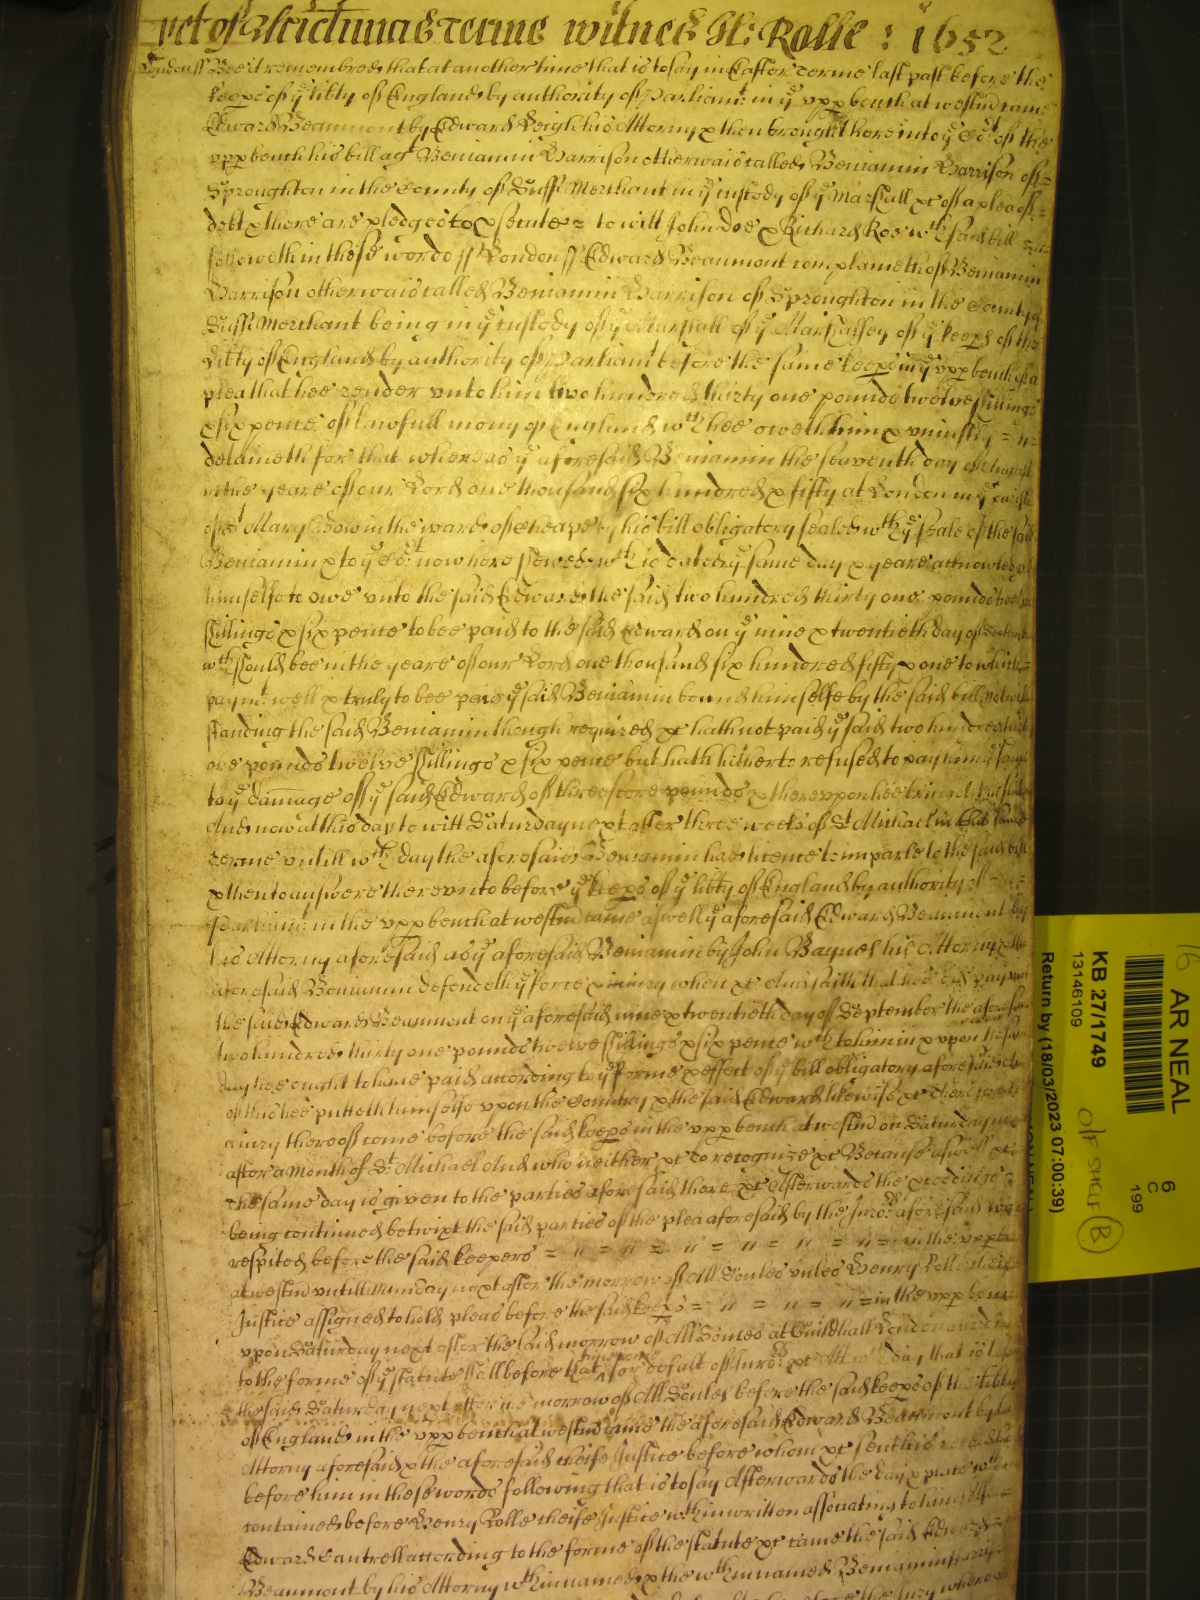 yet of Michmas Terme witnes H: Rolle : 1652
London ss Bee it remembred that at another time that is to say in Easter Terme last past before the
keeps of ye libty of England by authority of Parliamt: in ye vpp bench at westm came
Edward Beaumont by Edward Leigh his Attorny & then brought here into ye Cot of the
vpp bench his bill agt Beniamin Harrison otherwais called Beniamin Harrison of =
Sproughton in the County of Suff Merchant in ye custody of ye Marshall &c of a plea of =
debt & there are pledges to psecute = to witt John Doe & Richard Roe wch said bill
followeth in these words ss London ss Edward Beaumont complaineth of Beniamin
Harrison otherwais called Beniamin Harrison of Sproughton in the County of
Suff Merchant being in ye custody of ye Marshall of ye Marshalsey of ye keeps of the
Libty of England by authority of Parliamt before the same keeps in ye vpp bench of a
plea that hee render vnto him two hundred thirty one pounds twelve shillings
& six pence of lawfull mony of England wch hee oweth him & vniustly = " =
detaineth for that whereas ye aforesaid Beniamin the seaventh day of August
in the yeare of our Lord one thousand six hundred & fifty at London in ye parish
of St Mary Bow in the ward of Cheape by his bill obligatory sealed wth ye seale of the said
Beniamin & to ye Cot: now here shewed wch is dated ye same day & yeare acknowledged
himselfe to owe vnto the said Edward the said two hundred thirty one pounds twelve
shillings & six pence to bee paid to the said Edward on ye nine & twentieth day of September
wch should bee in the yeare of our Lord one thousand six hundred fifty & one to which =
paymt: well & truly to bee paid ye said Beniamin bound himselfe by the said bill notwith
standing the said Beniamin though required &c hath not paid ye said two hundred thirty
one pounds twelve shillings & six pence but hath hitherto refused to pay him
to ye damage of ye said Edward of threescore pounds & therevpon hee brings his suite
And now at this day to witt Saturday next after three weeks of St Michael in this same
Terme vntill wch day the aforesaid Beniamin had licence to imparle to the said bill
& then to answere therevnto before ye keeps of ye libty of England by authority of
Parliamt: in the vpp bench at westm came aswell ye aforesaid Edward Beaumont by
his Attorny aforesaid as ye aforesaid Beniamin by John Baynes his Attorny & the
aforesaid Beniamin defendeth ye force & iniury when &c And saith that hee did pay vnto
the said Edward Beaumont on ye aforesaid nine & twentieth day of September the aforesaid
two hundred thirty one pounds twelve shillings & six pence wch to him in & vpon the same
day hee ought to have paid according to ye forme & effect of ye bill obligatory aforesaid And
of this hee putteth himselfe vpon the Country & the said Edward likewise &c Therefore
a iury thereof come before the said keeps in the vpp bench at westm on Saturday next
after a Month of St Michael And who neither &c to recognize &c Because aswell &c
The same day is given to the parties aforesaid there &c Afterwards the proceedings
being continued betwixt the said parties of the plea aforesaid by the Juro: aforesaid was
respited before the said keepers = " = " = " = " = " = " = in the vpp
at westm vntill Munday next after the morrow of All Soules vnles Henry Rolle cheife
Justice assigned to hold pleas before the said keeps = " = " = " = in the vpp bench
vpon Saturday next after the said morrow of All Soules at Guildhall London according
to the forme of ye statute shall before that time come for default of Juro: &c At wch day that is to say
the said Saturday next after the morrow of All Soules before the said keeps of the libty
of England in the vpp bench at westm came the aforesaid Edward Beaumont by his
Attorny aforesaid & the aforesaid cheife Justice before whom &c sent his record had
before him in these words following that is to say Afterwards the day & place wthin
contained before Henry Rolle cheife Justice wthinwritten associating to himselfe =
Edward Cantrell according to the forme of the statute &c came the said Edward =
Beaumont by his Attorny wthinnamed & the wthinnamed Beniamin Harrison
AR NEAL
6
C
199
KB 27/1749
13146109
Return by (18/03/2023 07:00:39)
O/F SHELF (B)
16